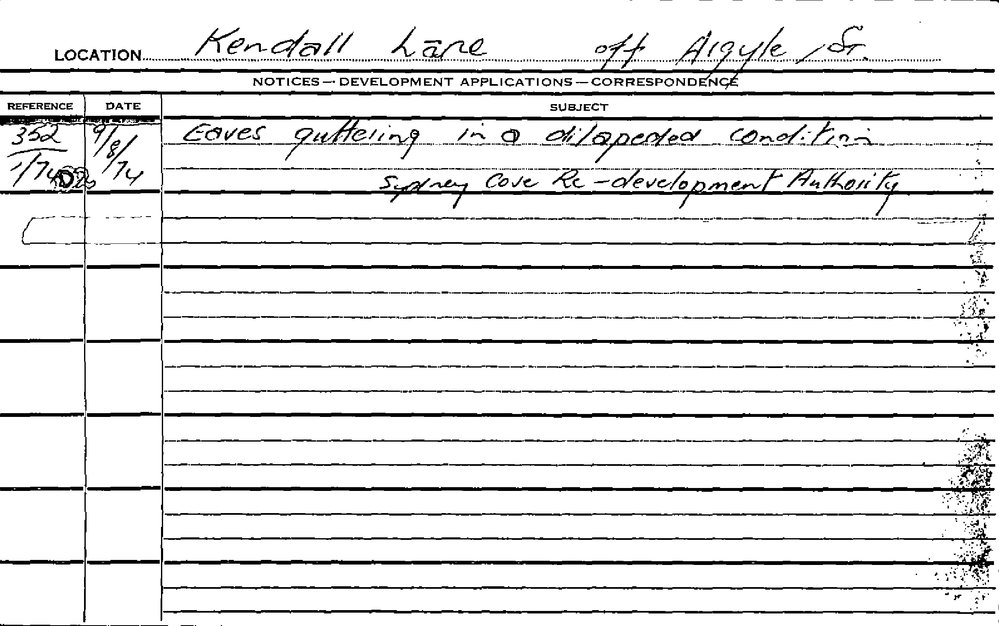 LOCATION Kendall Lane off Argyle St.
NOTICES—DEVELOPMENT APPLICATIONS—CORRESPONDENCE
REFERENCE DATE SUBJECT
352 9/8/74 Eaves guttering in a dilapedted condition
1/74 Sydney Cove Re-development Authority